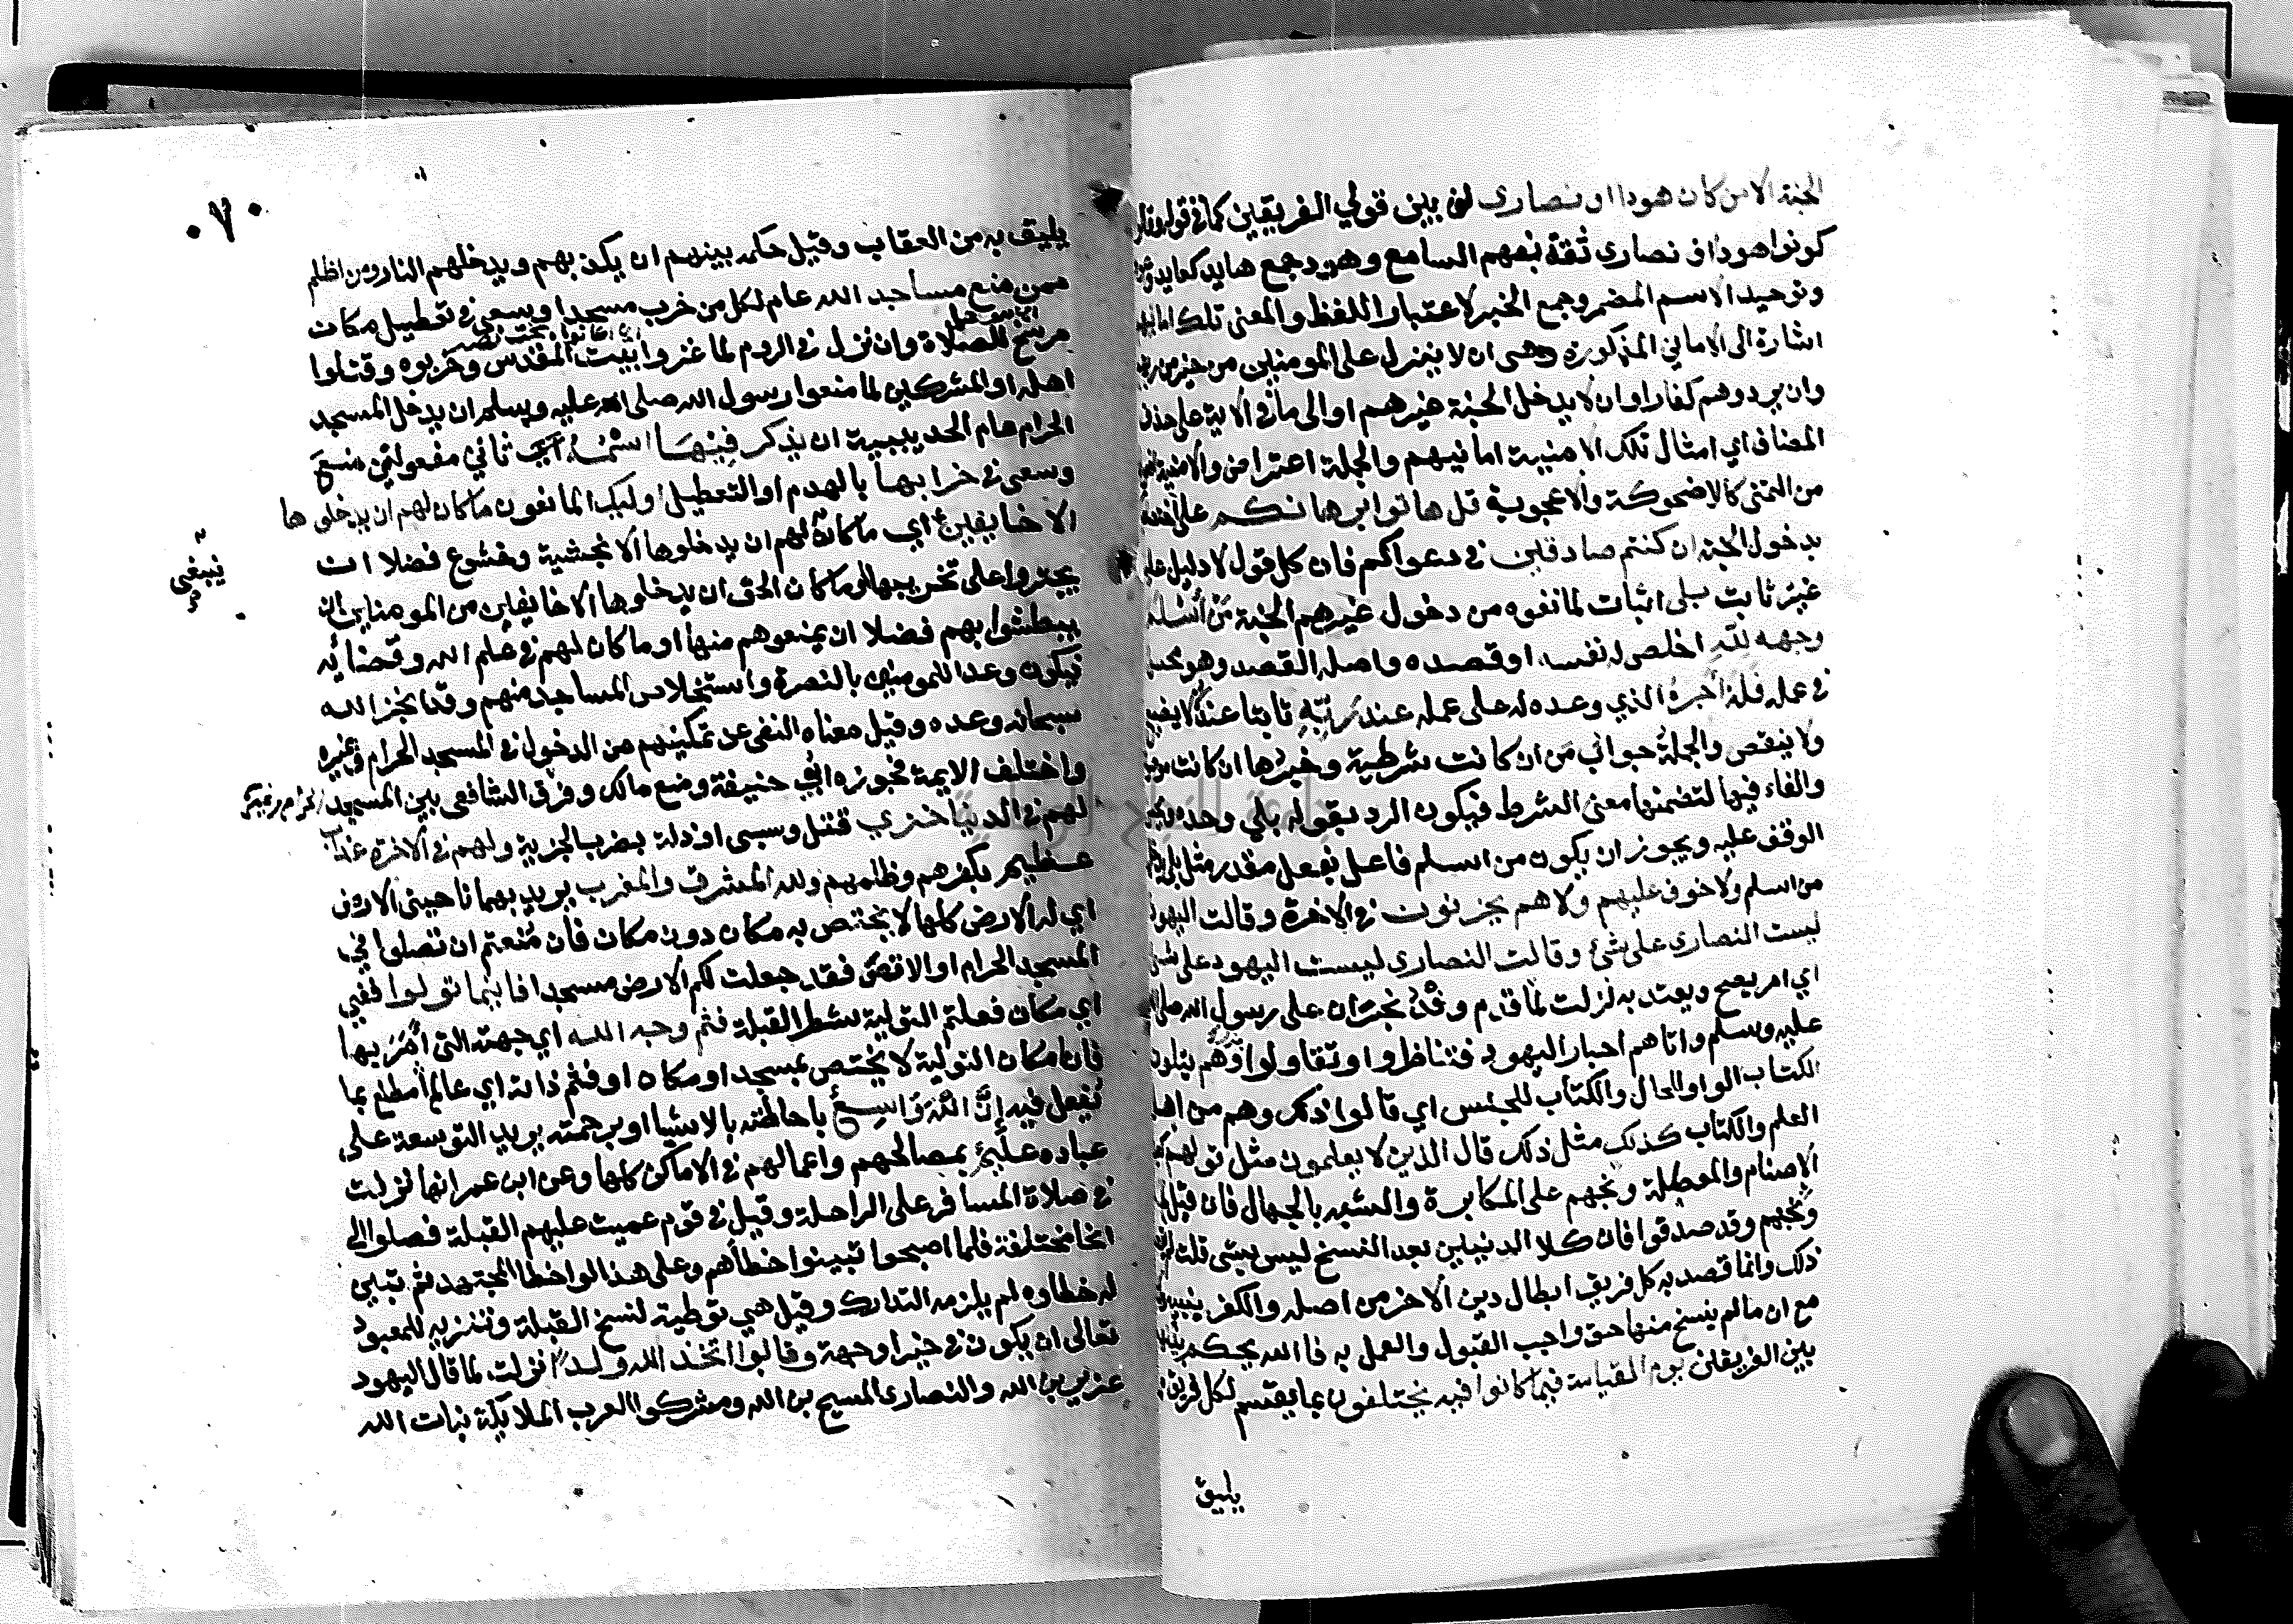 الجنة الا من كان هودا او نصارى لف بين قولي الفريقين كما في قوله وقالوا
كونوا هودا او نصارى ثقة بفهم السامع وهود جمع هايد كعايد
وتوحيد الاسم المضمر وجمع الخبر لاعتبار اللفظ والمعنى تلك امانيهم
اشارة الى الاماني المذكورة وهي ان لا ينزل على المومنين من خير من ربهم
وان يردوهم كفارا وان لا يدخل الجنة غيرهم او الى ما في الاية على حذف
المضاف اي امثال تلك الامنية امانيهم والجملة اعتراض والامنية
من التمنى كالاضحوكة والاعجوبة قل هاتوا برهانكم على
بدخول الجنة ان كنتم صادقين في دعواكم فان كل قول لا دليل عليه
غير ثابت بلى اثبات لما نفوه من دخول غيرهم الجنة من أسلم
وجهه لله اخلص له نفسه او قصده واصله القصد وهو محسن
في عمله فله أجره الذي وعده له على عمله عند ربه ثابتا عنده لا يضيع
ولا ينقص والجملة جواب من ان كانت شرطية وخبرها ان كانت
والفاء فيها لتضمنها معنى الشرط فيكون الرد بقوله بلى وحده
الوقف عليه ويجوز ان يكون من اسلم فاعل بفعل مقدر مثل بلى
من اسلم ولا خوف عليهم ولا هم يحزنون في الاخرة وقالت اليهود
ليست النصارى على شئ وقالت النصارى ليست اليهود على شئ
اي امر يصح ويعتد به نزلت لما قدم وفد نجران على رسول الله صلى الله
عليه وسلم واتاهم احبار اليهود فتناظروا وتقاولوا وهم يتلون
الكتاب الواو للحال والكتاب للجنس اي قالوا ذلك وهم من اهل
العلم والكتاب كذلك مثل ذلك قال الذين لا يعلمون مثل قولهم
الاصنام والمعطلة وبخهم على المكابرة والتشبه بالجهال فان قيل
وبخهم وقد صدقوا فان كلا الدينين بعد النسخ ليس بشى قلت
ذلك وانما قصد به كل فريق ابطال دين الاخر من اصله والكفر بنبيه
مع ان ما لم ينسخ منها حق واجب القبول والعمل به فالله يحكم بينهم
بين الفريقين يوم القيامة فيما كانوا فيه يختلفون بما يقسم لكل فريق
يليق
٧٠
يليق به من العقاب وقيل حكمه بينهم ان يكذبهم ويدخلهم النار ومن اظلم
ممن منع مساجد الله عام لكل من خرب مسجدا وسعى في تعطيل مكان
مرشح للصلاة وان نزل في الروم لما غزوا بيت المقدس وخربوه وقتلوا
اهله او المشركين لما منعوا رسول الله صلى الله عليه وسلم ان يدخل المسجد
الحرام عام الحديبية ان يذكر فيها اسمه ثاني مفعولي منع
وسعى في خرابها بالهدم او التعطيل اوليك المانعون ما كان لهم ان يدخلوها
الا خايفين اي ما كان لهم ان يدخلوها الا بخشية وخشوع فضلا ان
ينبغي
يجترؤا على تخريبها او ما كان الحق ان يدخلوها الا خايفين من المومنين ان
يبطشوا بهم فضلا ان يمنعوهم منها او ما كان لهم في علم الله وقضائه
فيكون وعدا للمومنين بالنصرة واستخلاص المساجد منهم وقد انجز الله
سبحانه وعده وقيل معناه النهي عن تمكينهم من الدخول في المسجد الحرام وغيره
واختلف الايمة فجوزه ابي حنيفة ومنع مالك وفرق الشافعي بين المسجد الحرام وغيره
لهم في الدنيا خزي قتل وسبي او ذلة بضرب الجزية ولهم في الاخرة عذاب
عظيم بكفرهم وظلمهم ولله المشرق والمغرب يريد بهما ناحيتى الارض
اي له الارض كلها لا يختص به مكان دون مكان فان منعتم ان تصلوا في
المسجد الحرام او الاقصى فقد جعلت لكم الارض مسجدا فاينما تولوا ففي
اي مكان فعلتم التولية شطر القبلة فثم وجه الله اي جهته التي أمر بها
فان مكان التولية لا يختص بمسجد او مكان او فثم ذاته اي عالم مطلع بما
تفعل فيه إن الله واسع باحاطته بالاشيا او برحمته يريد التوسعة على
عباده عليم بمصالحهم واعمالهم في الاماكن كلها وعن ابن عمر انها نزلت
في صلاة المسافر على الراحلة وقيل في قوم عميت عليهم القبلة فصلوا الى
انحا مختلفة فلما اصبحوا تبينوا خطأهم وعلى هذا لو اخطا المجتهد ثم تبين
له خطاوه لم يلزمه التدارك وقيل هي توطية لنسخ القبلة وتنزيه للمعبود
تعالى ان يكون في حيز او جهة وقالوا اتخذ الله ولدا نزلت لما قال اليهود
عزير بن الله والنصارى المسيح بن الله ومشركوا العرب الملايكة بنات الله